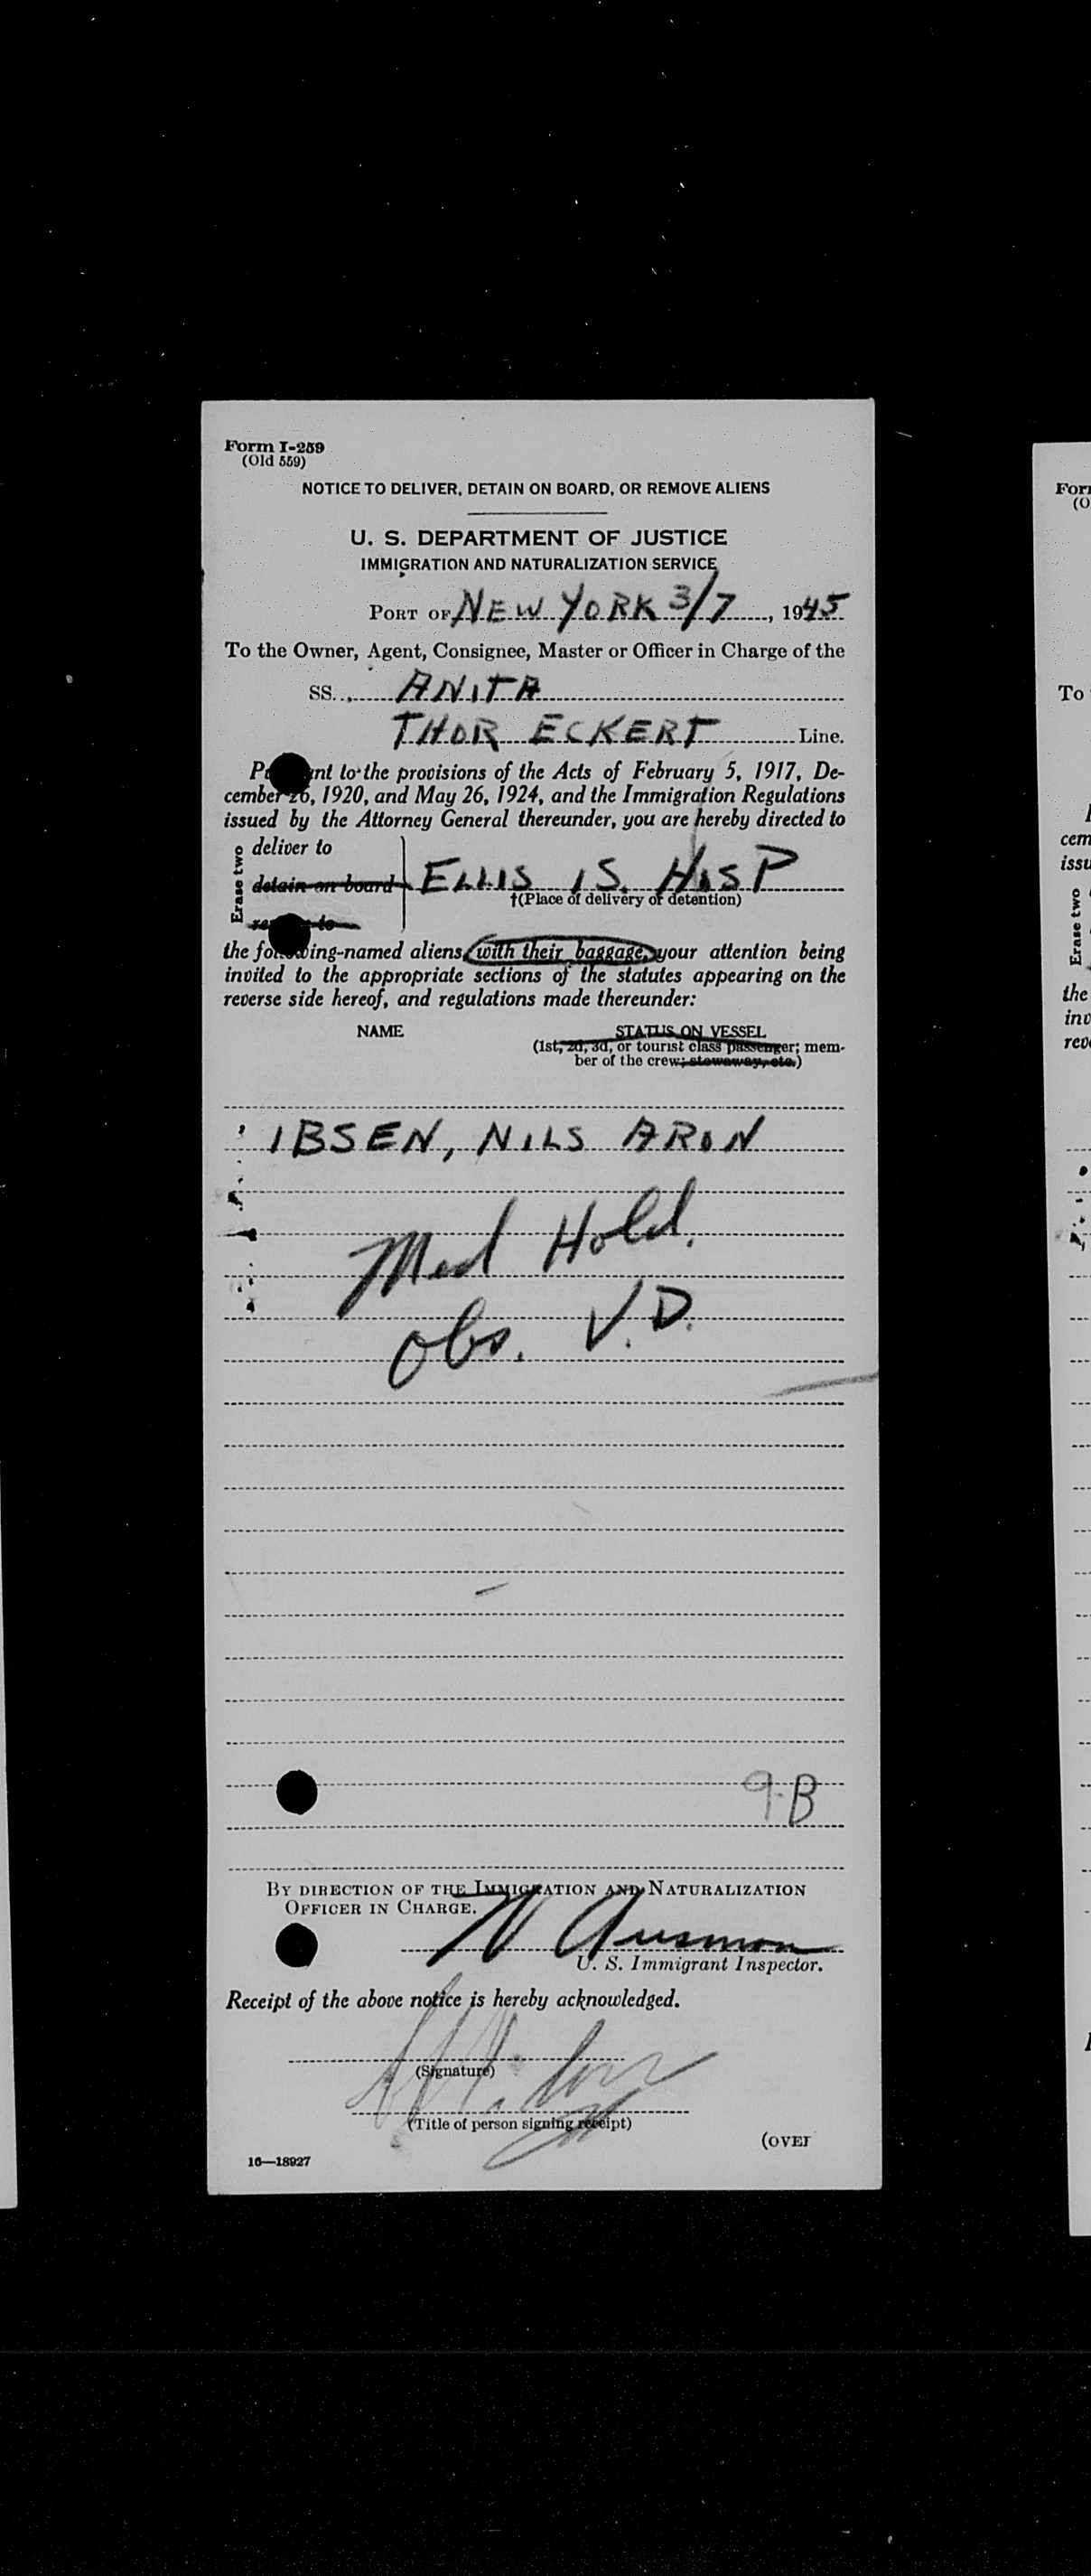 Form I-259
(Old 559)
NOTICE TO DELIVER, DETAIN ON BOARD, OR REMOVE ALIENS
U. S. DEPARTMENT OF JUSTICE
IMMIGRATION AND NATURALIZATION SERVICE
PORT OF NEW YORK 3/7, 1945
To the Owner, Agent, Consignee, Master or Officer in Charge of the
SS. ANITA
THOR ECKERT Line.
to the provisions of the Acts of February 5, 1917, De-
cember 26, 1920, and May 26, 1924, and the Immigration Regulations
issued by the Attorney General thereunder, you are hereby directed to
Erase two
deliver to
detain on board ELLIS IS. HOSP
†(Place of delivery or detention)
to
the following-named aliens, with their baggage, your attention being
invited to the appropriate sections of the statutes appearing on the
reverse side hereof, and regulations made thereunder:
NAME STATUS ON VESSEL
(1st, 2d, 3d, or tourist class passenger; mem-
ber of the crew; stowaway, etc.)
IBSEN, NILS ARON
Med Hold.
Obs. V.D.
9-B
BY DIRECTION OF THE IMMIGRATION AND NATURALIZATION
OFFICER IN CHARGE.
U. S. Immigrant Inspector.
Receipt of the above notice is hereby acknowledged.
(Signature)
(Title of person signing receipt)
(OVER
16—18927
Form
(O
To
cem
issu
Erase two
the
inv
reve